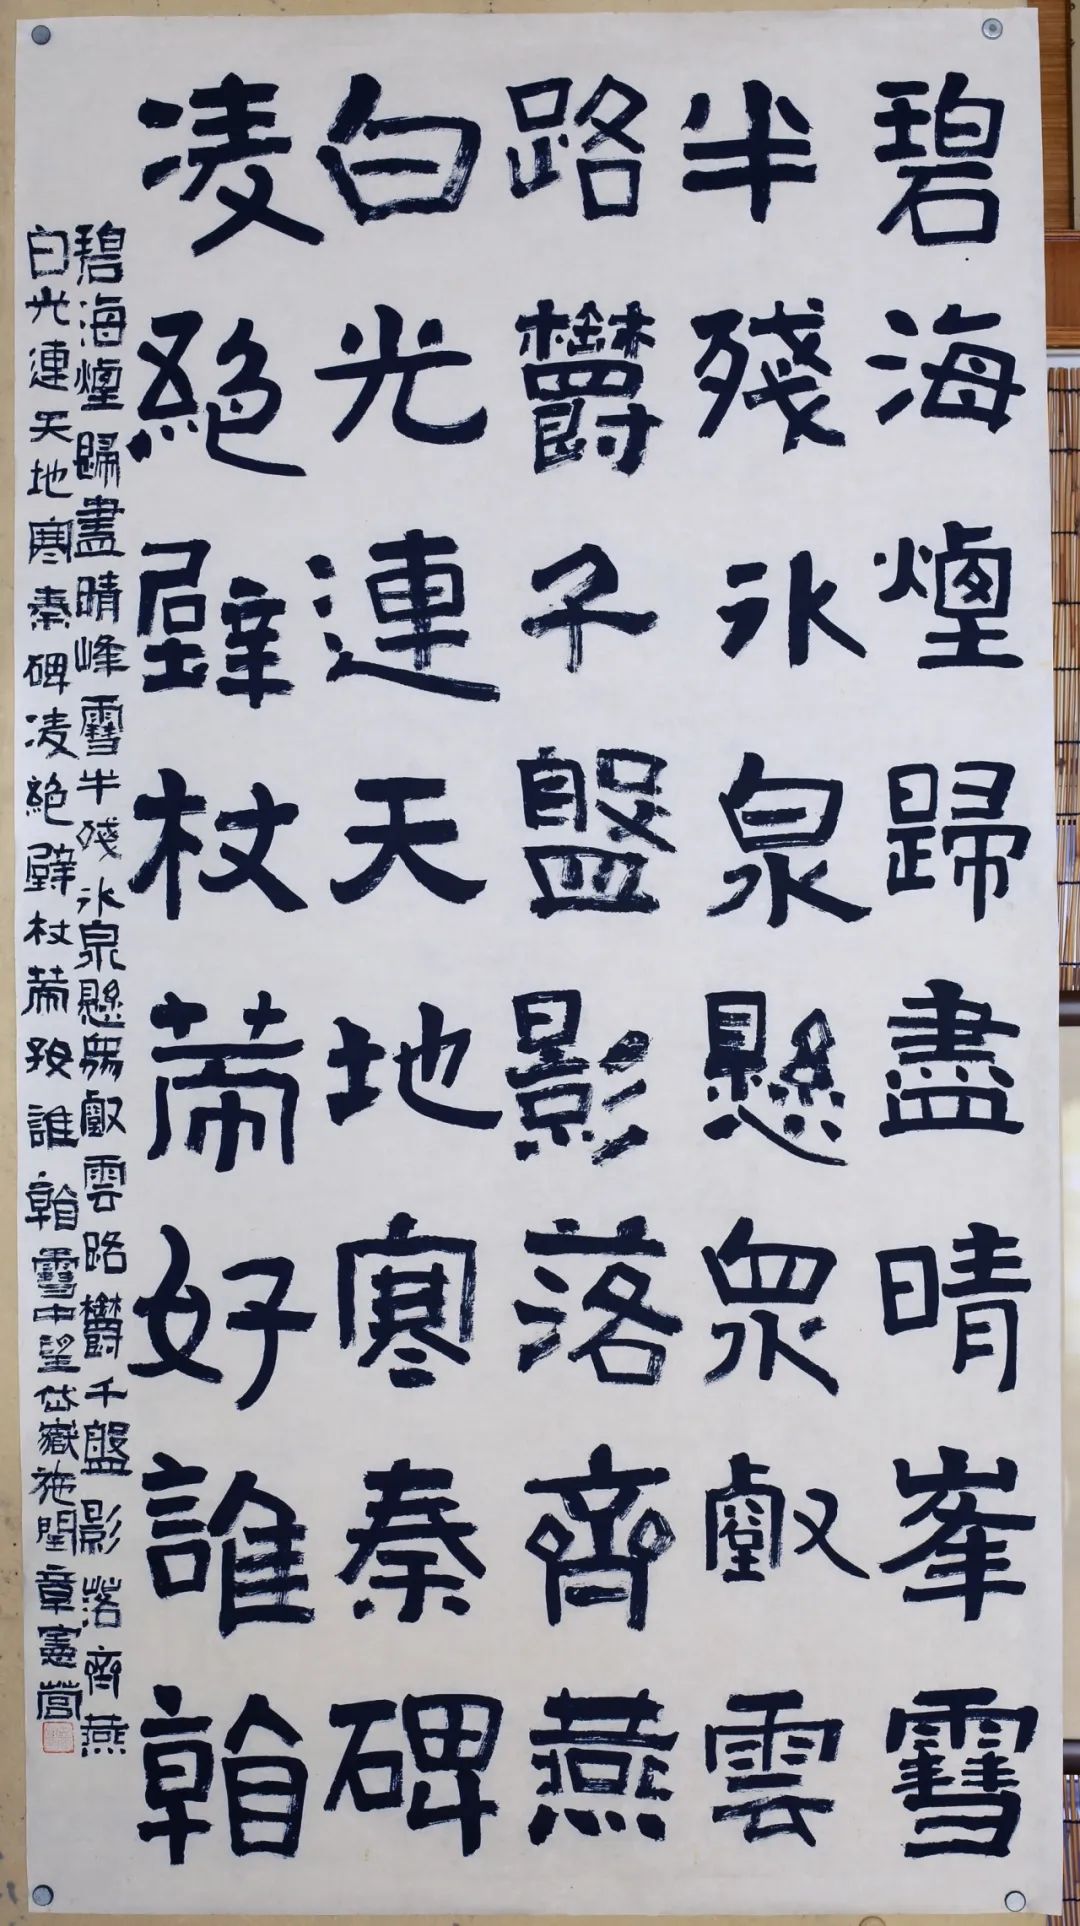 碧海煙歸盡晴峯雪
半殘氷泉懸眾壑雲
路欝千盤影落齊燕
白光連天地寒秦碑
凌絕壁杖策好誰看
碧海煙歸盡晴峰雪半殘氷泉懸眾壑雲路欝千盤影落齊燕
白光連天地寒秦碑凌絕壁杖策好誰看雪中望岱嶽施閏章憲